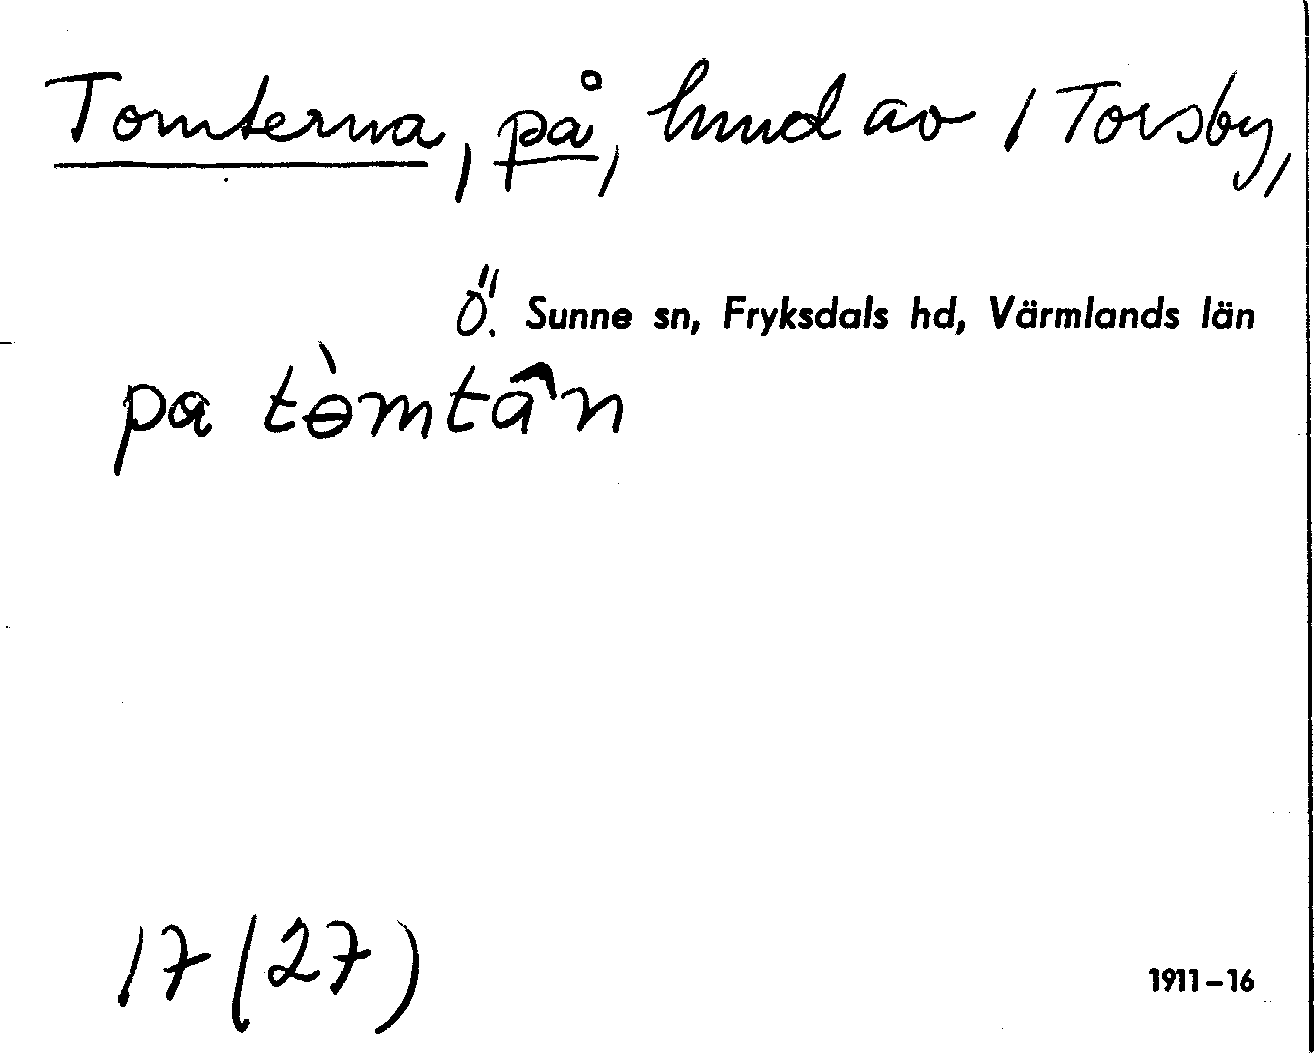 Tomterna, på, hmd av 1 Torsby,
Ö. Sunne sn, Fryksdals hd, Värmlands län
pa tòmtân
17 (27)
1911-16